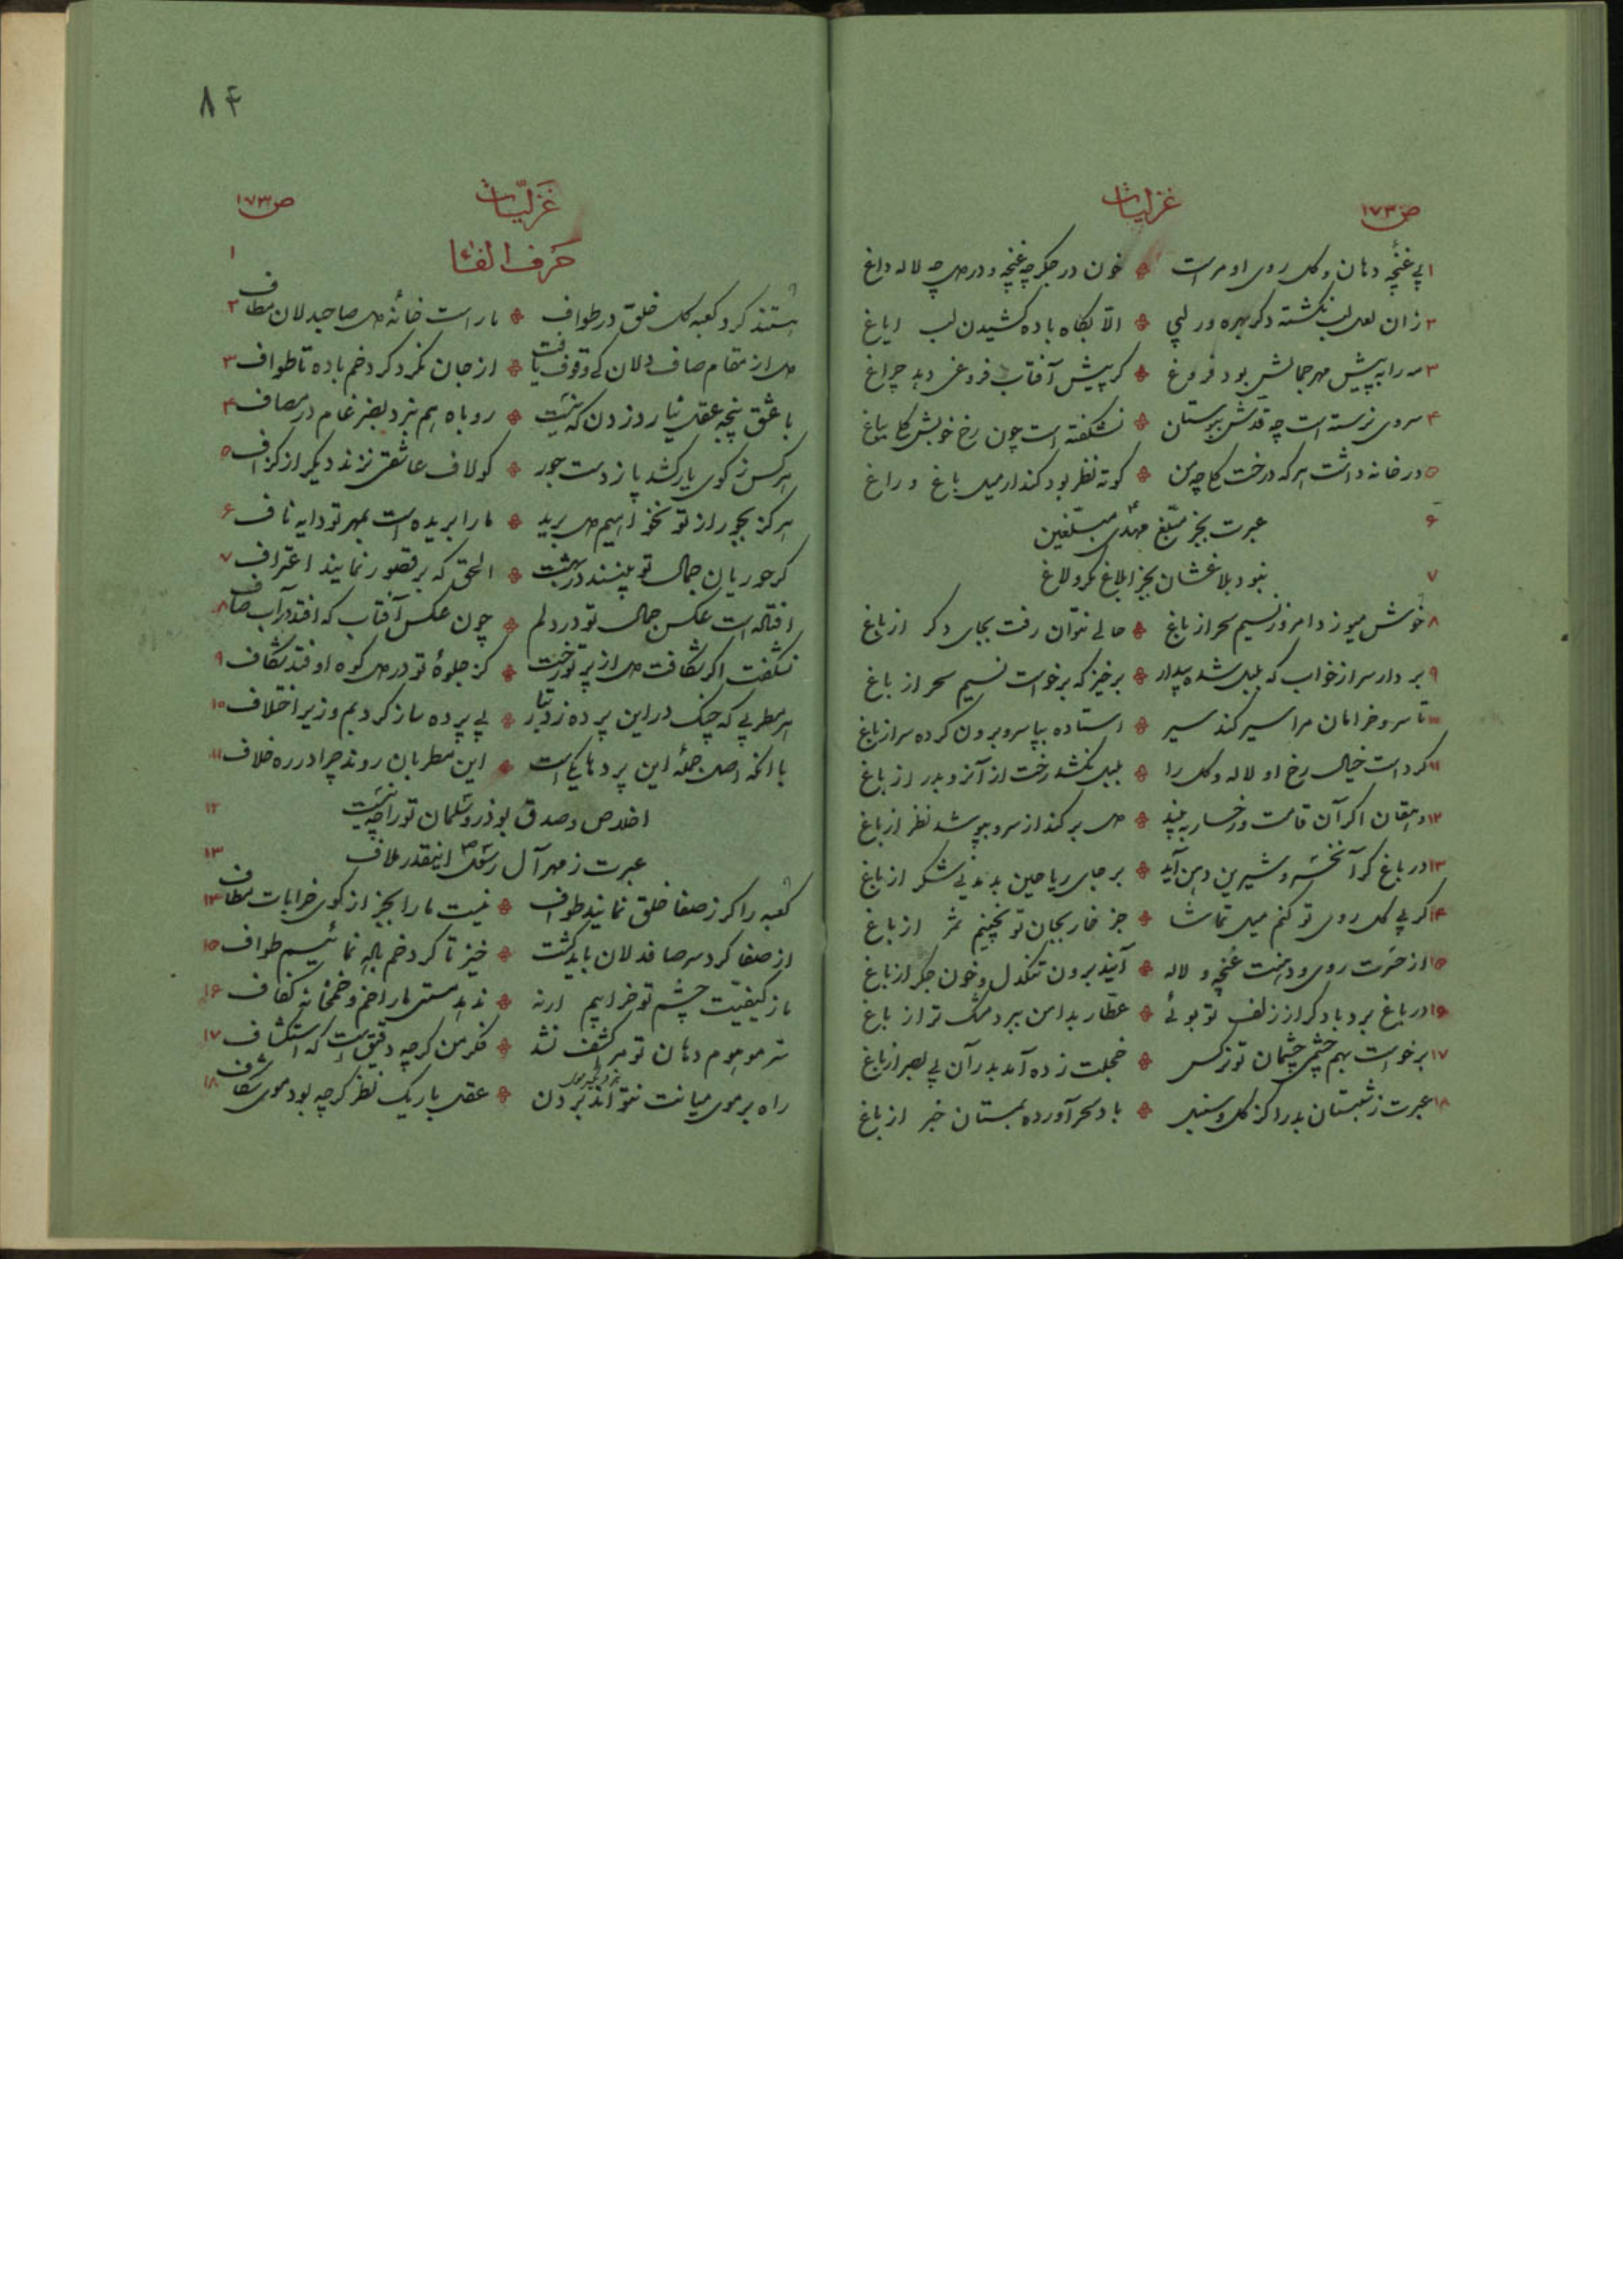 غزلیات
ص ۱۷۳
۱ بی غنچه دهان و گل روی او مراست ❖ خون در جگر چه غنچه و در دل چه لاله داغ
۲ زان لعل لب نگشته دگر بهره ور لبی ❖ الّا بگاه باده کشیدن لب ایاغ
۳ مه را به پیش مهر جمالش بود فروغ ❖ گر پیش آفتاب فروغی دهد چراغ
۴ سروی نرسته است چه قدش ببوستان ❖ نشکفته است چون رخ خوبش گلی بباغ
۵ در خانه داشت هر که درخت گلی چه من ❖ کوته نظر بود کند ار میل باغ و راغ
۶ عبرت بجز مبلّغ مهدی مبلّغین
۷ نبود بلاغشان بجز ابلاغ کرولاغ
۸ خوش میوزد امروز نسیم سحر از باغ ❖ حالی نتوان رفت بجای دگر از باغ
۹ بردار سر از خواب که بلبل شده بیدار ❖ برخیز که برخواست نسیم سحر از باغ
۱۰ تا سرو خرامان مرا سیر کند سیر ❖ استاده بپا سرو برون کرده سر از باغ
۱۱ کرد است خیال رخ او لاله و گل را ❖ بلبل نکشد رخت از آنرو بدر از باغ
۱۲ دهقان اگر آن قامت و رخسار به بیند ❖ دل برکند از سرو بپوشد نظر از باغ
۱۳ در باغ گر آن خسرو شیرین دهن آید ❖ بر جای ریاحین بدمد نی شکر از باغ
۱۴ گر بی گل روی تو کنم میل تماشا ❖ جز خار بجان تو نچینم ثمر از باغ
۱۵ از حسرت روی و دهنت غنچه و لاله ❖ آیند برون تنگدل و خون جگر از باغ
۱۶ در باغ برد باد گر از زلف تو بوئی ❖ عطّار بدامن ببرد مشک تر از باغ
۱۷ برخواست بهم چشمی چشمان تو نرگس ❖ خجلت زده آمد بدر آن بی بصر از باغ
۱۸ عبرت ز شبستان بدر آ کز گل و سنبل ❖ باد سحر آورده بمستان خبر از باغ
۸۴
غزلیّات
ص ۱۷۳
حرف الفاء
۱
هستند گرد کعبه گل خلق در طواف ❖ ما راست خانهٔ دل صاحبدلان مطاف ۲
دل از مقام صاف دلان کی وقوف یافت ❖ از جان نکرد گرد خم باده تا طواف ۳
با عشق پنجه عقل نیارد زدن که نیست ❖ روباه هم نبرد بضرغام در مصاف ۴
هر کس ز کوی یار کشد پا ز دست جور ❖ گو لاف عاشقی نزند دیگر از گزاف ۵
هرگز بجور از تو نخواهیم دل برید ❖ ما را بریده است بمهر تو دایه ناف ۶
گر حوریان جمال تو بینند در بهشت ❖ الحق که بر قصور نمایند اعتراف ۷
افتاده است عکس جمال تو در دلم ❖ چون عکس آفتاب که افتد در آب صاف ۸
نشگفت اگر شکافت دل از پرتو رخت ❖ کز جلوهٔ تو در دل کوه اوفتد شکاف ۹
هر مطربی که چنگ در این پرده زد بتار ❖ بی پرده ساز کرد بم و زیر اختلاف ۱۰
با آنکه اصل جملهٔ این پردها یکی است ❖ این مطربان روند چرا در ره خلاف ۱۱
اخلاص و صدق بوذر و سلمان تو را چه نیست ۱۲
عبرت ز مهر آل رسول اینقدر ملاف ۱۳
کعبه را گر ز صفا خلق نمایند طواف ❖ نیست ما را بجز از کوی خرابات مطاف ۱۴
از صفا گرد سر صافدلان باید گشت ❖ خیز تا گرد خم باده نمائیم طواف ۱۵
ما ز کیفیّت چشم تو خرابیم ارنه ❖ ندهد مستی ما را خم و خمخانه کفاف ۱۶
سرّ موهوم دهان تو مرا کشف نشد ❖ فکر من گرچه دقیق است که استکشاف ۱۷
راه بر موی میانت نتواند بردن ❖ عقل باریک نظر گرچه بود موی شکاف ۱۸